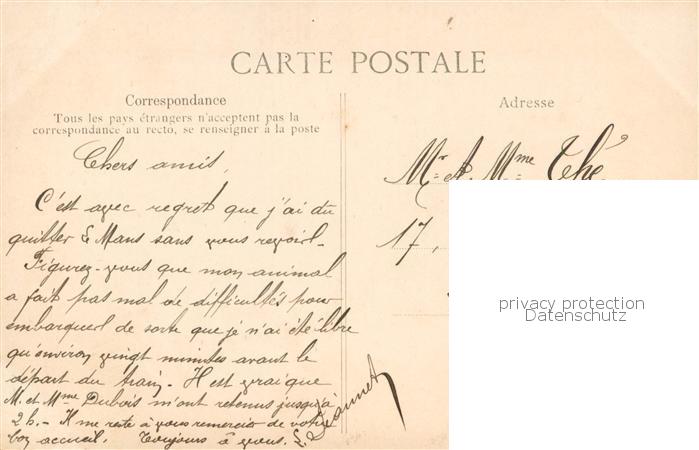 CARTE POSTALE
Correspondance
Tous les pays étrangers n'acceptent pas la
correspondance au recto, se renseigner à la poste
Adresse
Chers amis,
C'est avec regret que j'ai du
quitter Le Mans sans vous revoir.-
Figurez-vous que mon animal
a fait pas mal de difficultés pour
embarquer de sorte que je n'ai été libre
qu'environ vingt minutes avant le
départ du train.- Il est vrai que
M. et Mme Dubois m'ont retenus jusqu'à
2h.- Il me reste à vous remercier de votre
bon accueil. Toujours à vous.
Mr et Mme Thé
17,
privacy protection
Datenschutz